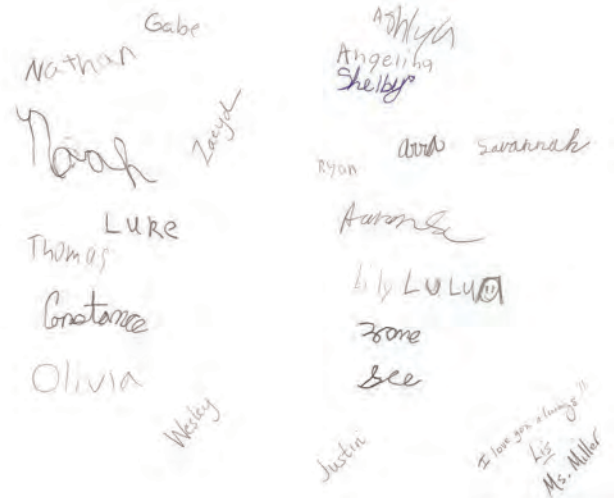 Gabe
Nathan
Noah
Zaeyd
Luke
Thomas
Constance
Olivia
Wesley
Angelina
Shelby
Ryan
Savannah
Lily LULU
see
Justin
I love you always!!
Ms. Miller